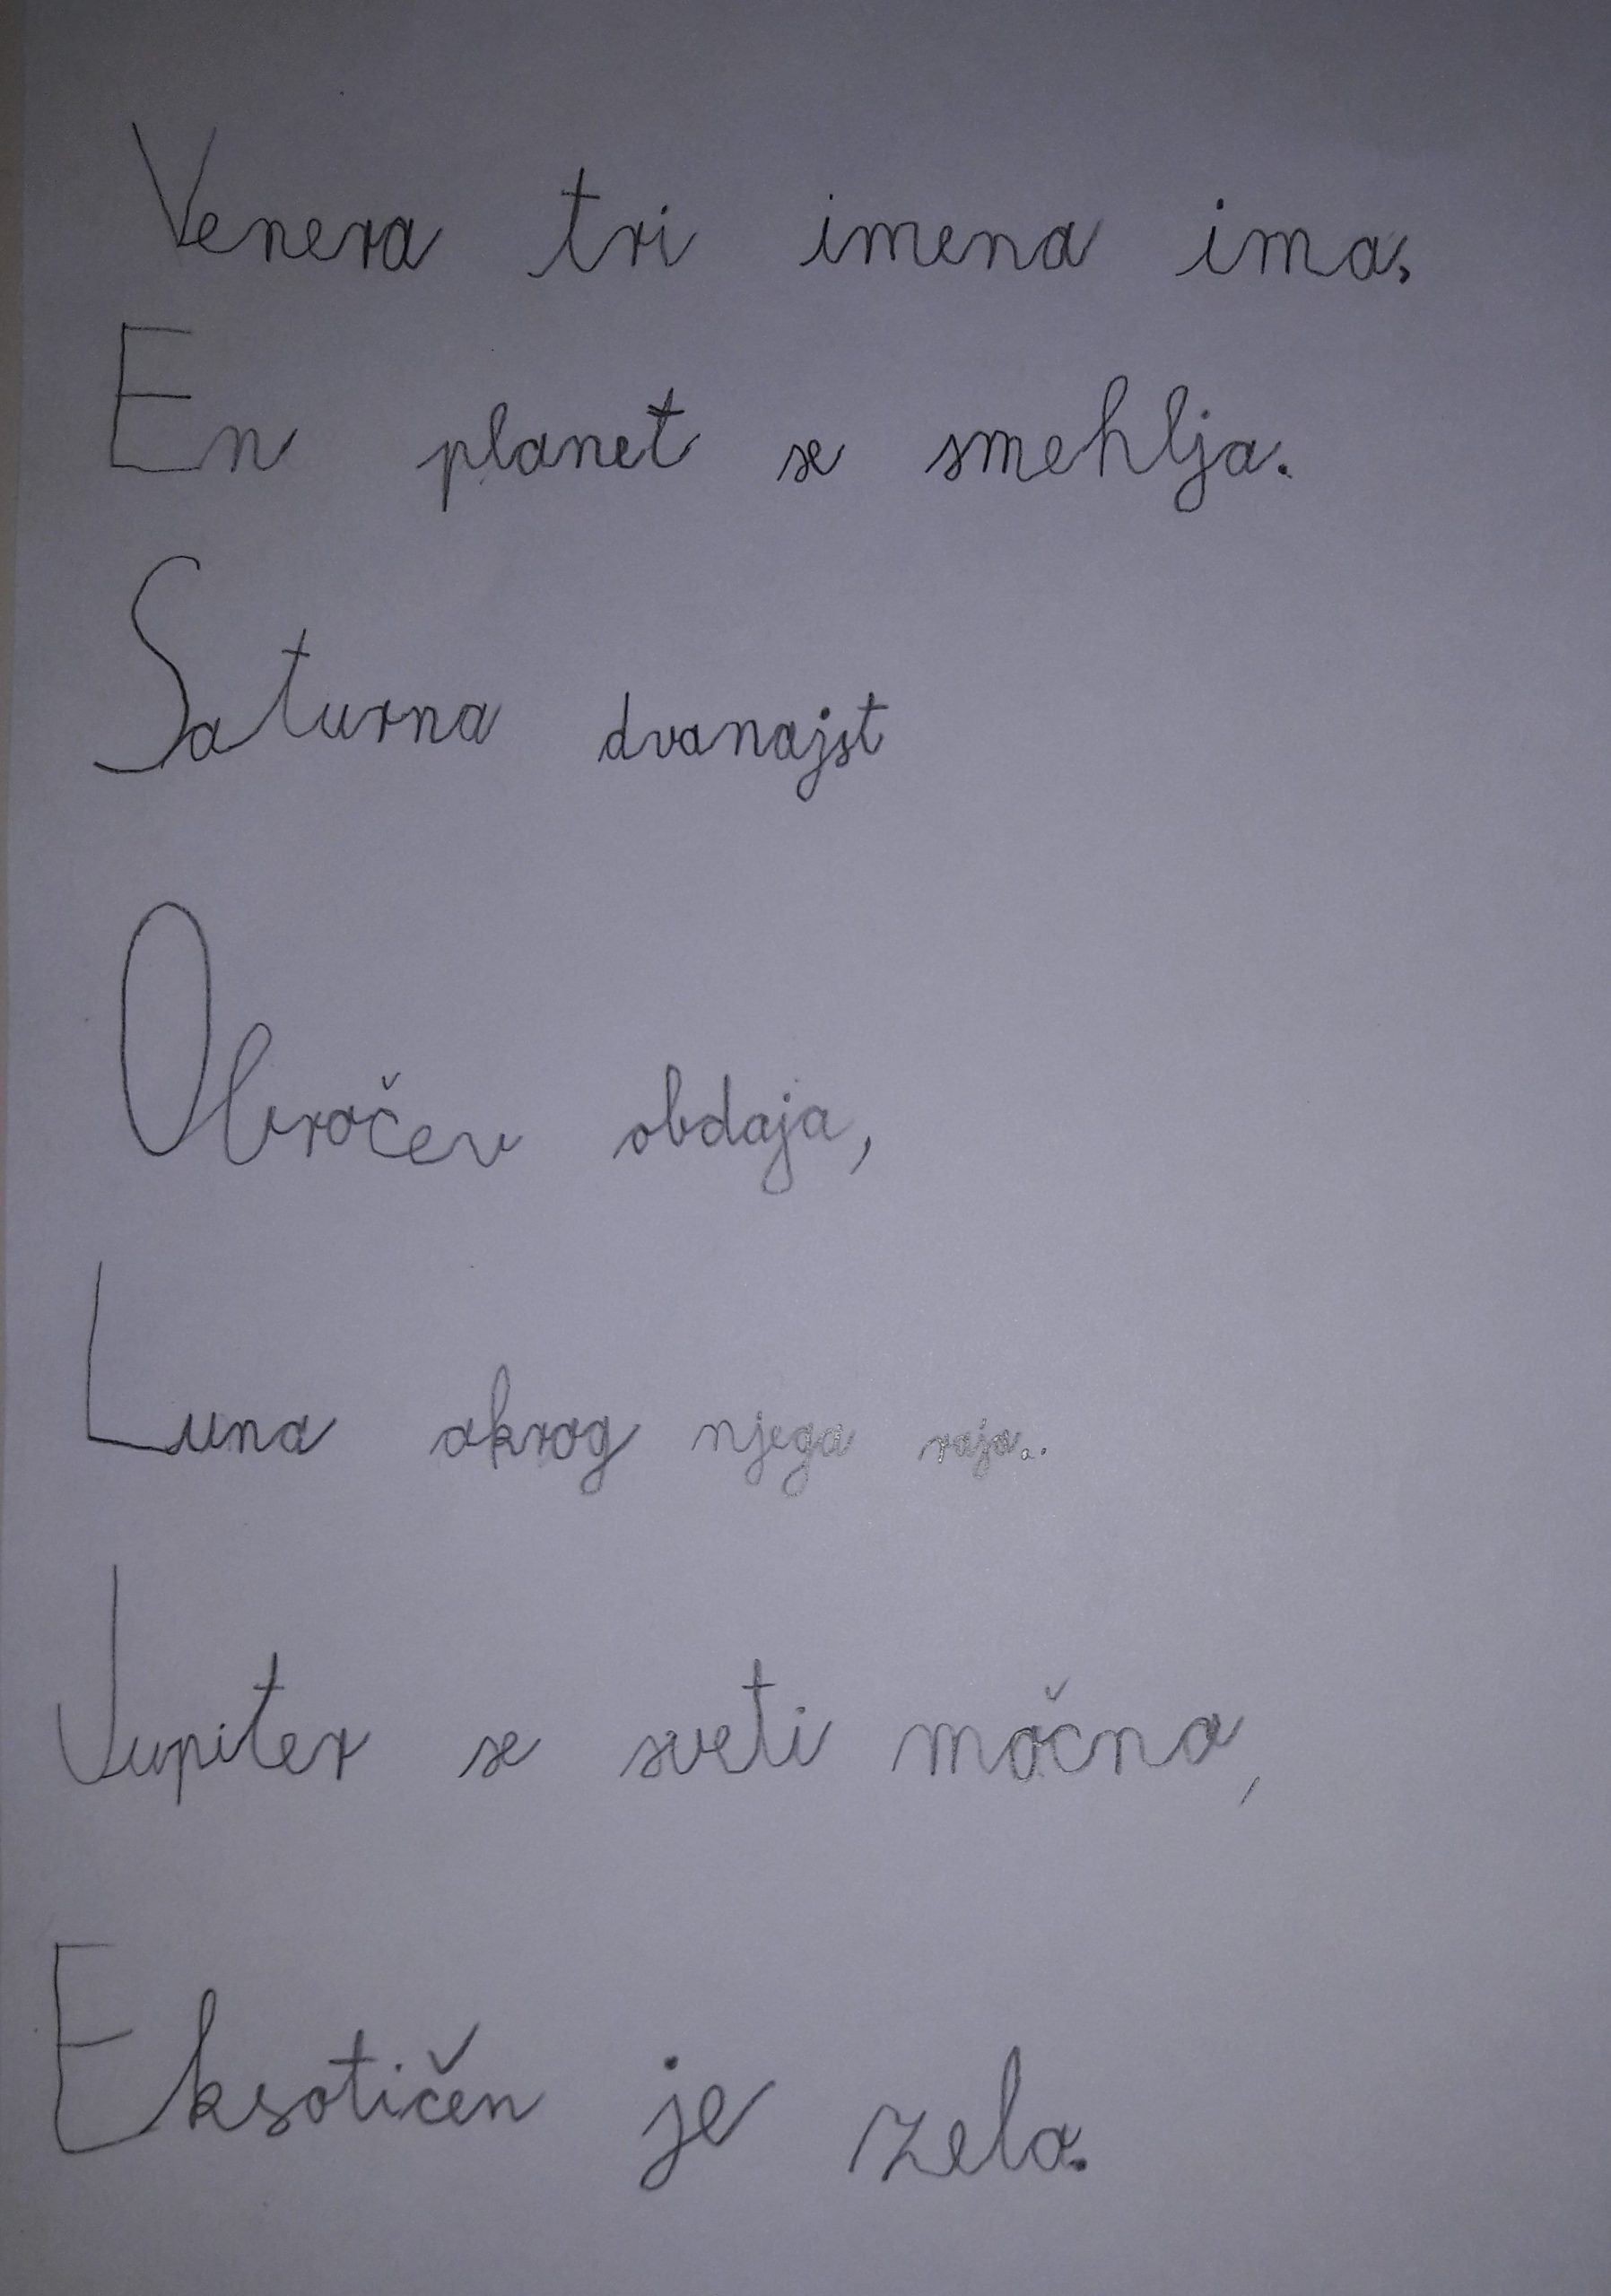 Venera tri imena ima,
En planet se smehlja.
Saturna dvanajst
Obročev obdaja,
Luna okrog njega raja..
Jupiter se sveti močno,
Eksotičen je zelo.